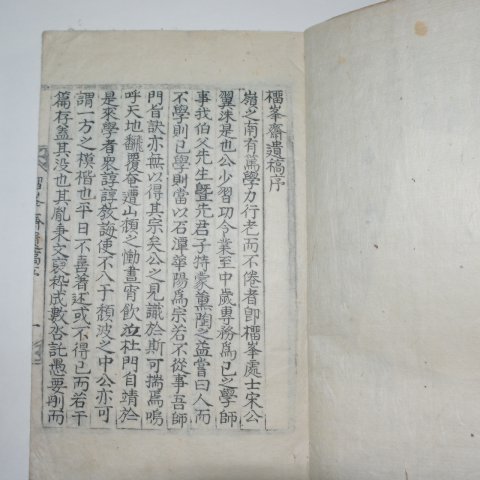 橊峯齋遺稿序
嶺之南有篤學力行老而不倦者卽橊峯處士宋公
翼洙是也公少習功令業至中歲專務爲己之學師
事我伯父先生曁先君子特蒙薰陶之益嘗曰人而
不學則已學則當以石潭華陽爲宗若不從事吾師
門旨訣亦無以得其宗矣公之見識於斯可揣爲嗚
呼天地飜覆奄遭山頹之慟晝宵飮泣杜門自靖於
是來學者衆諄諄敎誨使不入于頹波之中公亦可
謂一方之模楷也平日不善著述或不得已而若干
篇存盖其没也其胤秉文裒稡成數沓託愚要刪而